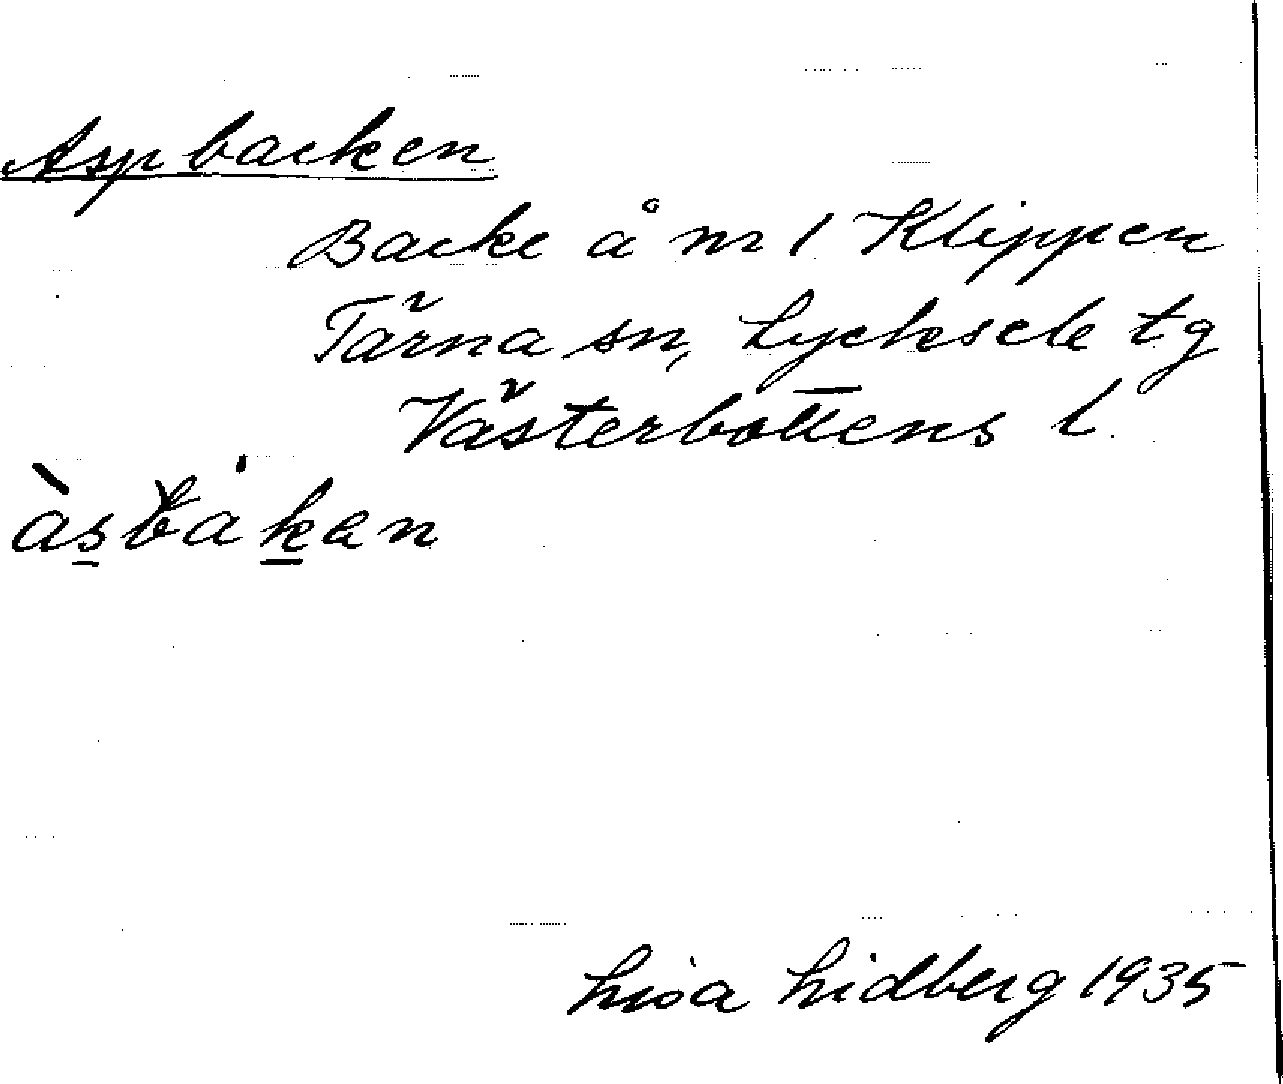 Aspbacken
Backe å nr 1 Klippen
Tärna sn, Lycksele tg
Västerbottens l.
Lisa Lidberg 1935